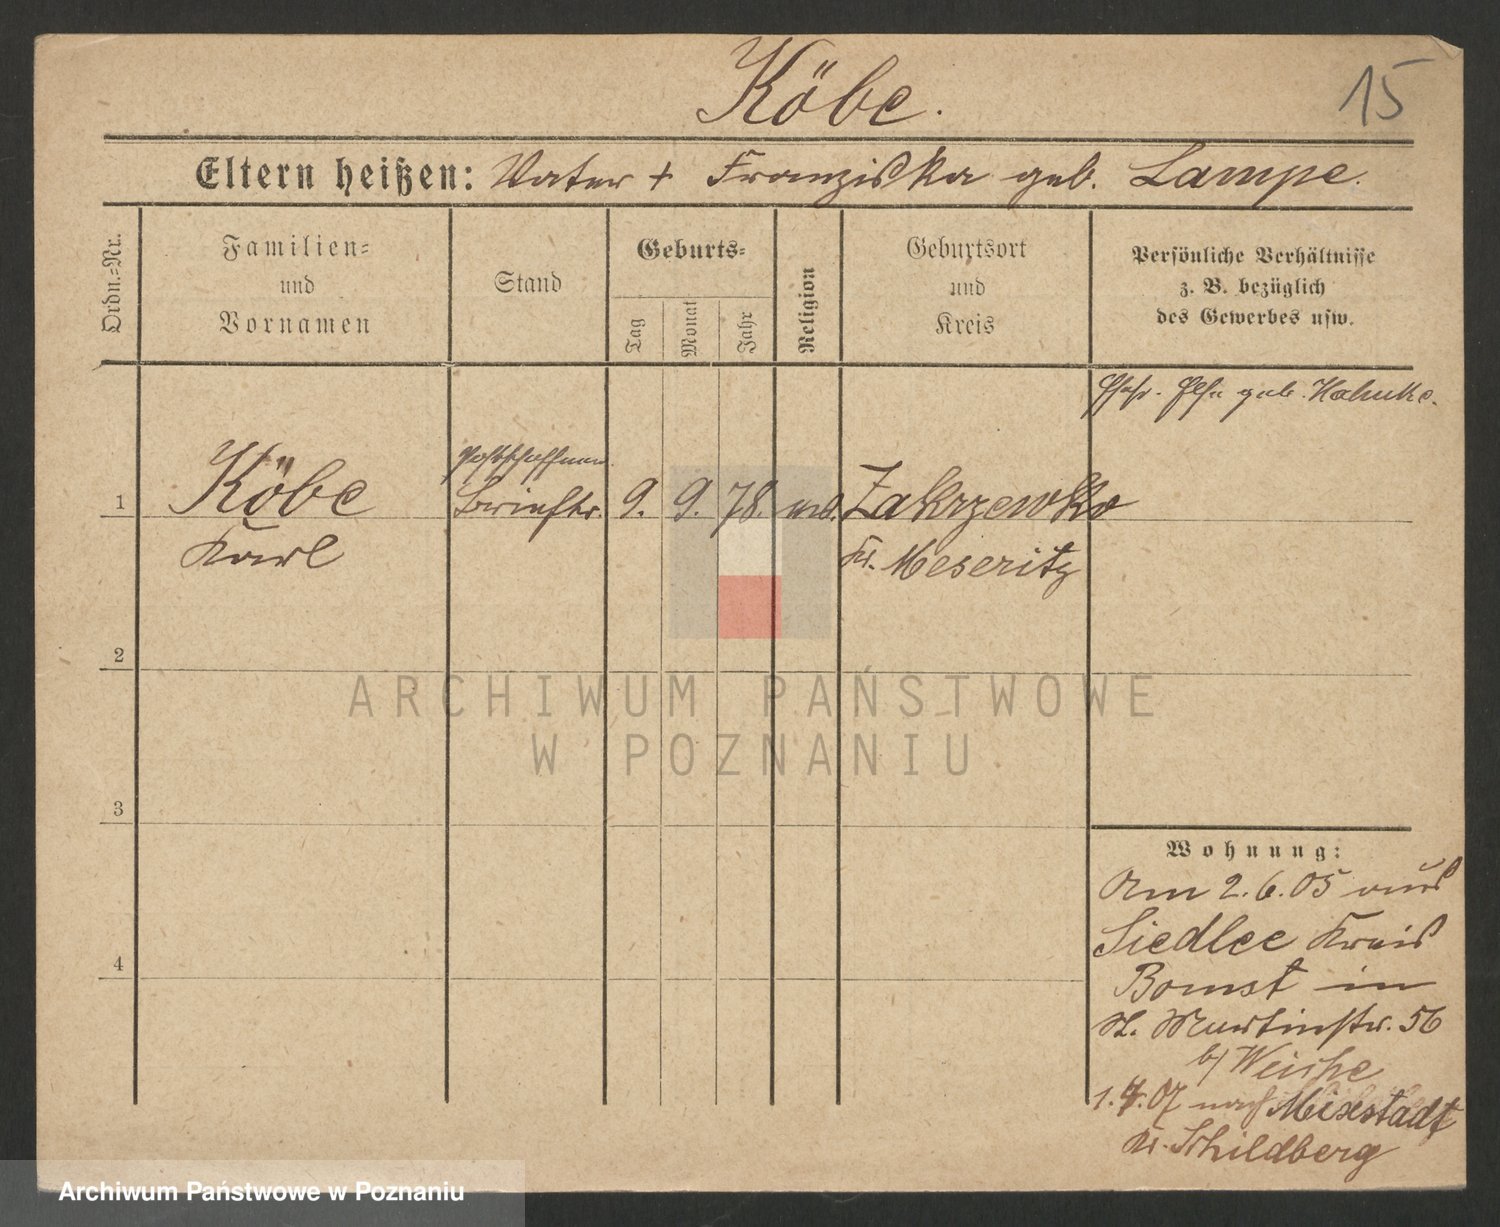 Köbe.
15
Eltern heißen: Vater + Franziska geb. Lampe.
Ordn.=Nr.
Familien=
und
Vornamen
Stand
Geburts=
Tag
Monat
Jahr
Religion
Geburtsort
und
Kreis
Persönliche Verhältnisse
z. B. bezüglich
des Gewerbes usw.
geb. Hahnke.
1
Köbe
Karl
Postschaffner
Brieftr.
9.
9.
78.
Zakrzewko
Kr. Meseritz
2
3
4
Wohnung:
Am 2.6.05 aus
Siedlec Kreis
Bomst in
St. Martinstr. 56
b/ Weiche
1.4.07 nach Mixstadt
Kr. Schildberg
ARCHIWUM PAŃSTWOWE
W POZNANIU
Archiwum Państwowe w Poznaniu